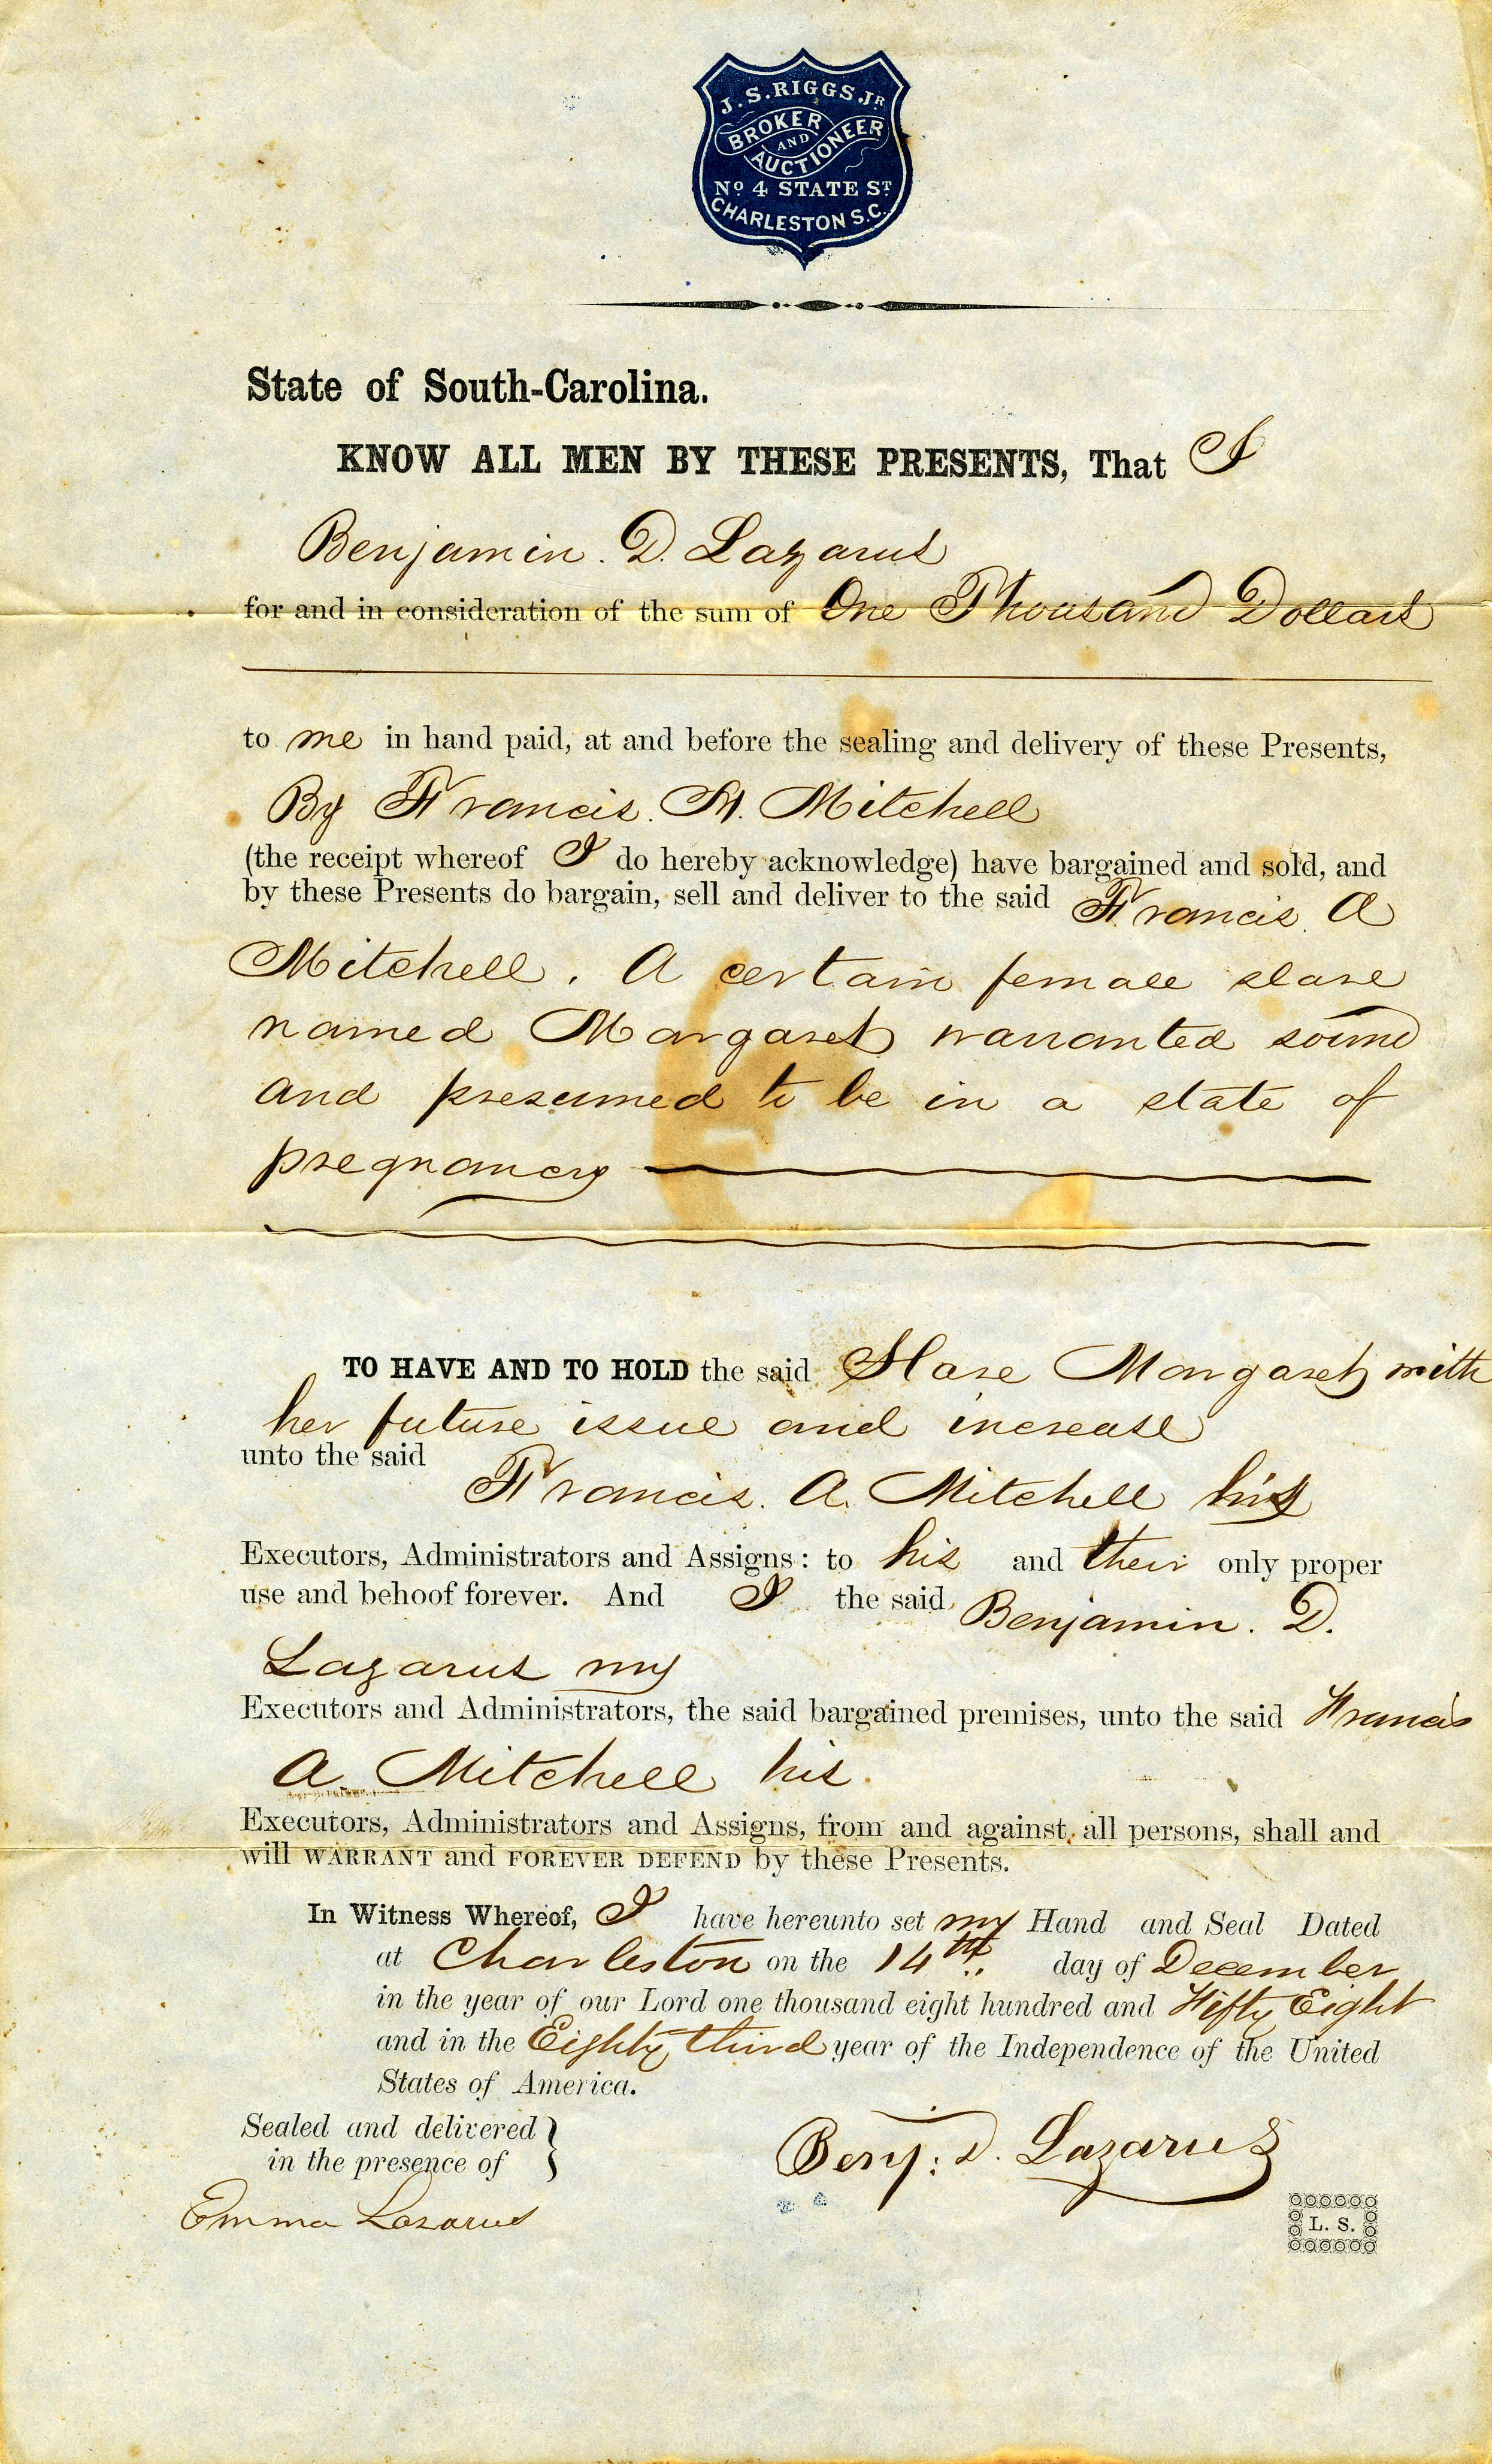 J. S. RIGGS JR
BROKER
AND
AUCTIONEER
No 4 STATE ST
CHARLESTON S.C.
State of South-Carolina.
KNOW ALL MEN BY THESE PRESENTS, That I
Benjamin. D. Lazarus
for and in consideration of the sum of One Thousand Dollars
to me in hand paid, at and before the sealing and delivery of these Presents,
By Francis. A. Mitchell
(the receipt whereof I do hereby acknowledge) have bargained and sold, and
by these Presents do bargain, sell and deliver to the said Francis. A
Mitchell. A certain female slave
named Margaret warranted sound
and presumed to be in a state of
pregnancy
TO HAVE AND TO HOLD the said Slave Margaret with
her future issue and increase
unto the said
Francis. A. Mitchell his
Executors, Administrators and Assigns: to his and their only proper
use and behoof forever. And I the said Benjamin. D.
Lazarus my
Executors and Administrators, the said bargained premises, unto the said Francis
A. Mitchell his.
Executors, Administrators and Assigns, from and against all persons, shall and
will WARRANT and FOREVER DEFEND by these Presents.
In Witness Whereof, I have hereunto set my Hand and Seal Dated
at Charleston on the 14th day of December
in the year of our Lord one thousand eight hundred and Fifty Eight
and in the Eighty third year of the Independence of the United
States of America.
Sealed and delivered
in the presence of
Benj: D. Lazarus
Emma Lazarus
L. S.